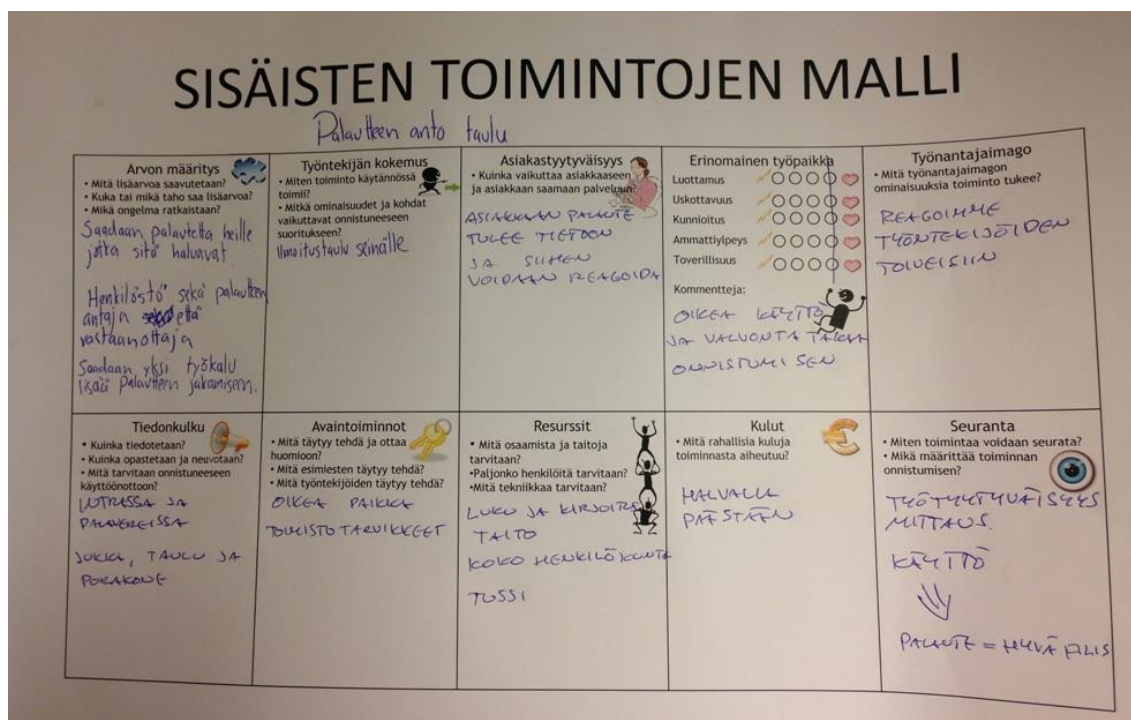 SISÄISTEN TOIMINTOJEN MALLI
Palautteen anto taulu
Arvon määritys
• Mitä lisäarvoa saavutetaan?
• Kuka tai mikä taho saa lisäarvoa?
• Mikä ongelma ratkaistaan?
Saadaan palautetta heille
jotka sitä haluavat.
Henkilöstö sekä palautteen
antaja että
vastaanottaja
Saadaan yksi työkalu
lisää palautteen jakamiseen.
Työntekijän kokemus
• Miten toiminto käytännössä
toimii?
• Mitkä ominaisuudet ja kohdat
vaikuttavat onnistuneeseen
suoritukseen?
Ilmoitustaulu seinälle
Asiakastyytyväisyys
• Kuinka vaikuttaa asiakkaaseen
ja asiakkaan saamaan palveluun?
ASIAKKAAN PALAUTE
TULEE TIETOON
JA SIIHEN
VOIDAAN REAGOIDA
Erinomainen työpaikka
Luottamus
Uskottavuus
Kunnioitus
Ammattiylpeys
Toverillisuus
Kommentteja:
OIKEA KÄYTTÖ
JA VALVONTA TAKAA
ONNISTUMISEN
Työnantajaimago
• Mitä työnantajaimagon
ominaisuuksia toiminto tukee?
REAGOIMME
TYÖNTEKIJÖIDEN
TOIVEISIIN
Tiedonkulku
• Kuinka tiedotetaan?
• Kuinka opastetaan ja neuvotaan?
• Mitä tarvitaan onnistuneeseen
käyttöönottoon?
JA
PALAVEREISSA
JUKKA, TAULU JA
PORAKONE
Avaintoiminnot
• Mitä täytyy tehdä ja ottaa
huomioon?
• Mitä esimiesten täytyy tehdä?
• Mitä työntekijöiden täytyy tehdä?
OIKEA PAIKKA
TOIMISTOTARVIKKEET
Resurssit
• Mitä osaamista ja taitoja
tarvitaan?
•Paljonko henkilöitä tarvitaan?
•Mitä tekniikkaa tarvitaan?
LUKU JA KIRJOITUS
TAITO
KOKO HENKILÖKUNTA
TUSSI
Kulut
• Mitä rahallisia kuluja
toiminnasta aiheutuu?
HALVALLA
PÄÄSTÄÄN
Seuranta
• Miten toimintaa voidaan seurata?
• Mikä määrittää toiminnan
onnistumisen?
TYÖTYYTYVÄISYYS
MITTAUS.
KÄYTTÖ
PALAUTE = HYVÄ FIILIS